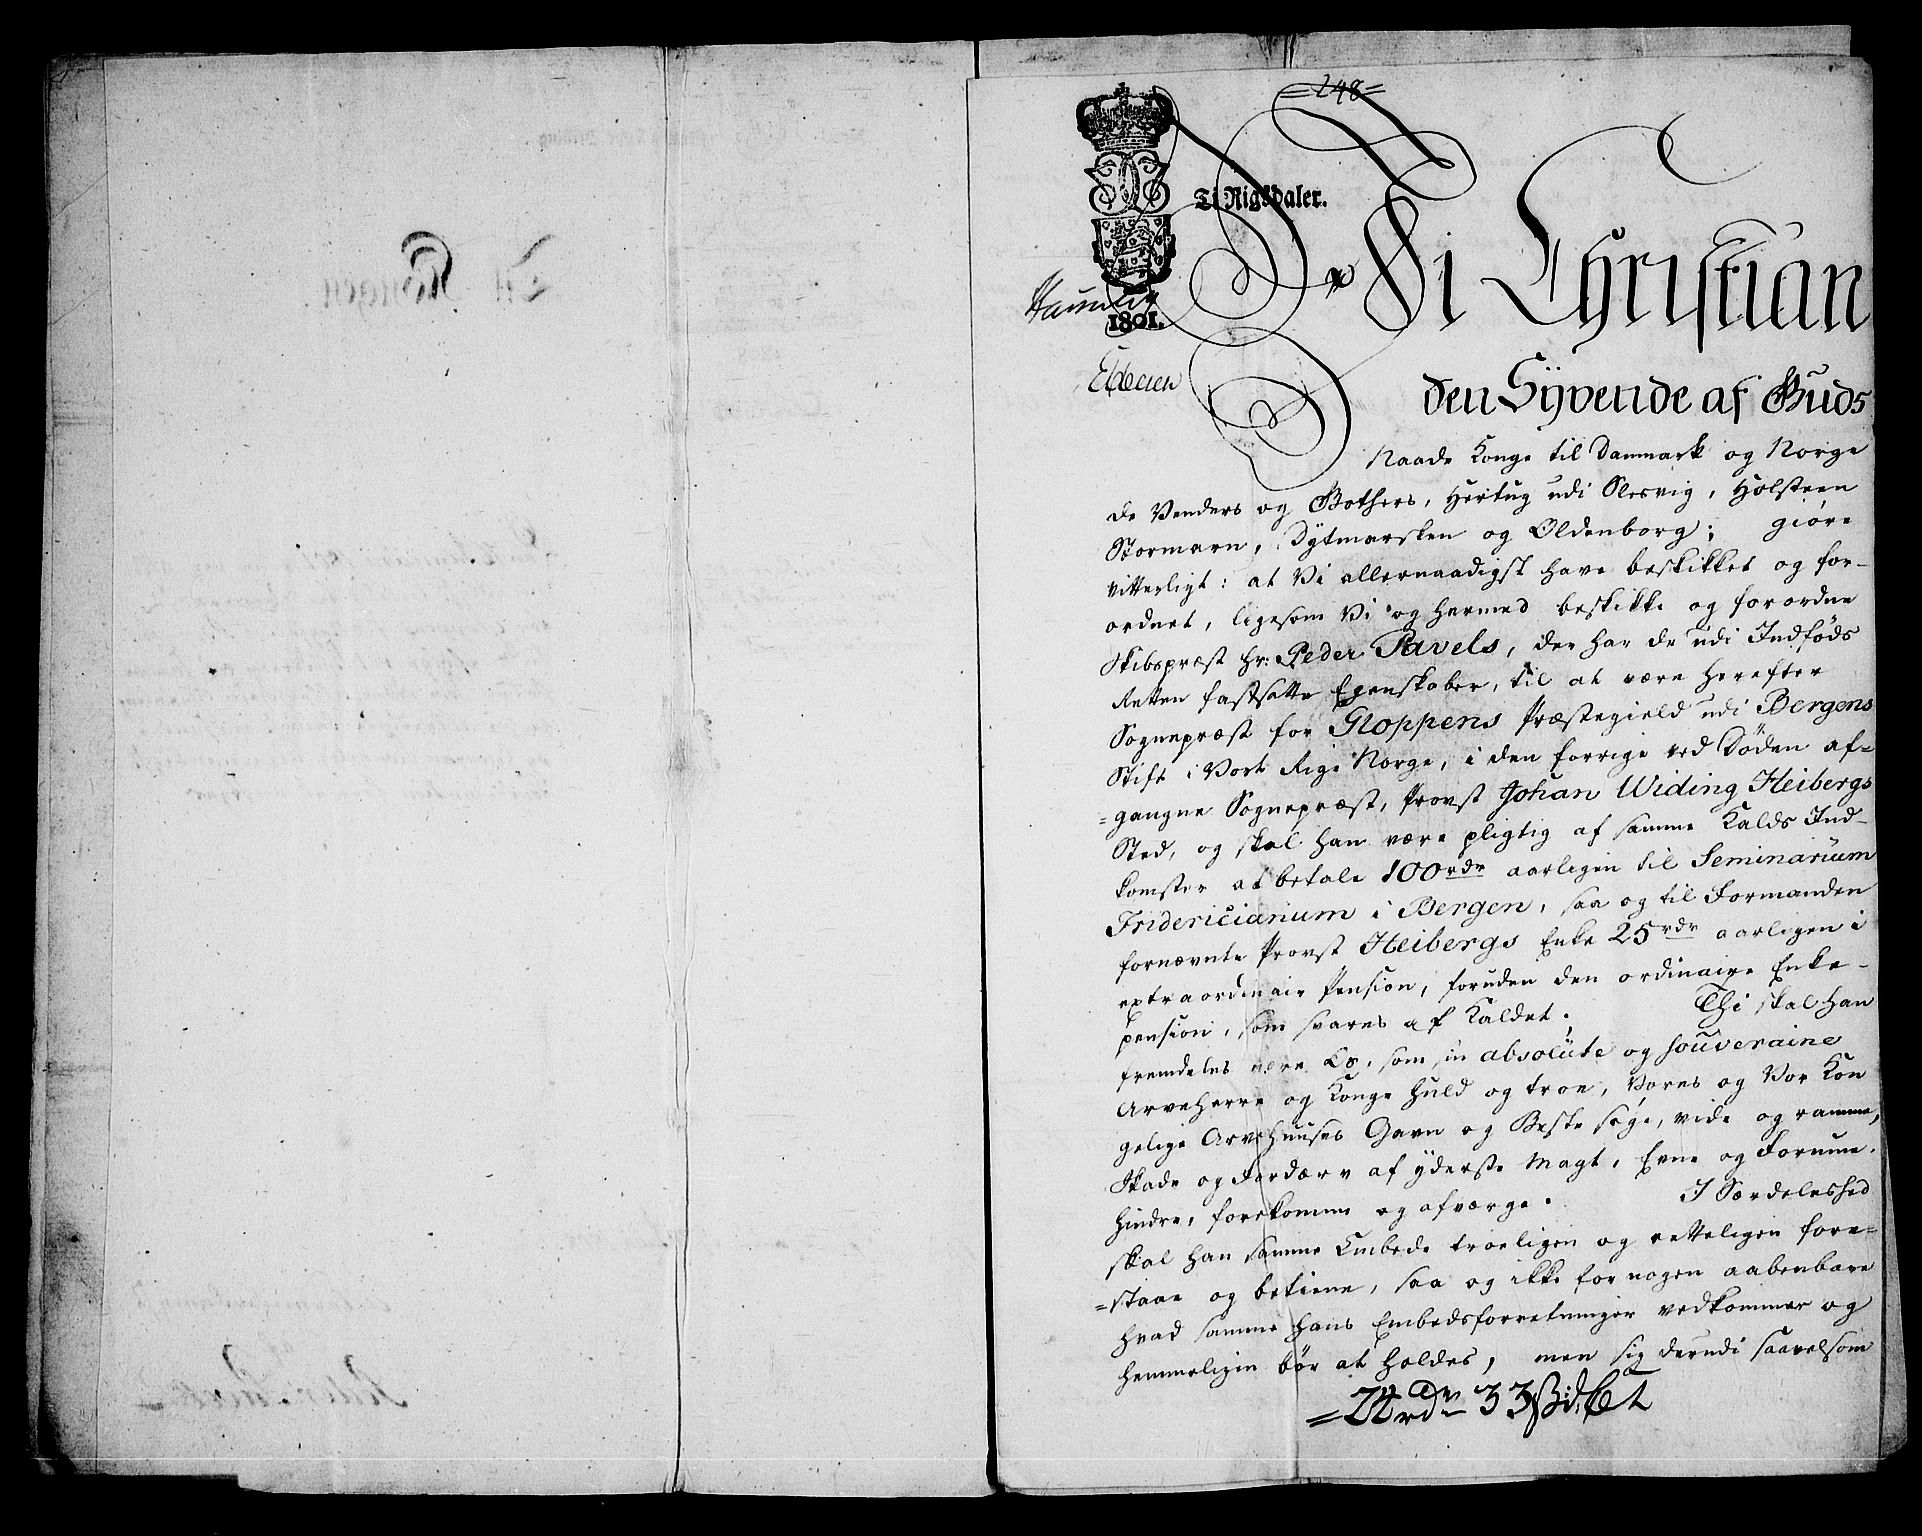 =248=
Ti Rigsdaler.
1801.
Vi Christian
den Syvende af Guds
Naade Konge til Danmark og Norge
de Venders og Gothers, Hertug udi Slesvig, Holsteen
Stormarn, Dytmarsken og Oldenborg; giøre
vitterligt: at Vi allernaadigst have beskikket og for-
ordnet, ligesom Vi og hermed beskikke og forordne
Skibspræst Hr: Peder Pavels, der har de udi Indføds
Retten fastsatte Egenskaber, til at være herefter
Sognepræst for Gloppens Præstegield udi Bergens
Stift i Vort Rige Norge, i den forrige ved Døden af=
=gangne Sognepræst, Provst Johan Widing Heibergs
Sted, og skal han være pligtig af samme Kalds Ind-
komster at betale 100 rdr aarligen til Seminarium
Fridericianum i Bergen, saa og til Formanden
fornævnte Provst Heibergs Enke 25 rdr aarligen i
extraordinair Pension, foruden den ordinaire Enke-
pension, som svares af Kaldet. Thi skal han
fremdeles være Os, som sin absolute og souveraine
Arveherre og Konge huld og troe, Vores og Vor Kon
gelige Arvehuuses Gavn og Beste søge, vide og ramme,
Skade og Fordærv af yderste Magt, Evne og Formue
hindre, forekomme og afværge. I Særdeleshed
skal han samme Embede troeligen og retteligen fore=
=staae og betiene, saa og ikke for nogen aabenbare
hvad samme hans Embedsforretninger vedkommer og
hemmeligen bør at holdes, men sig derudi saavelsom